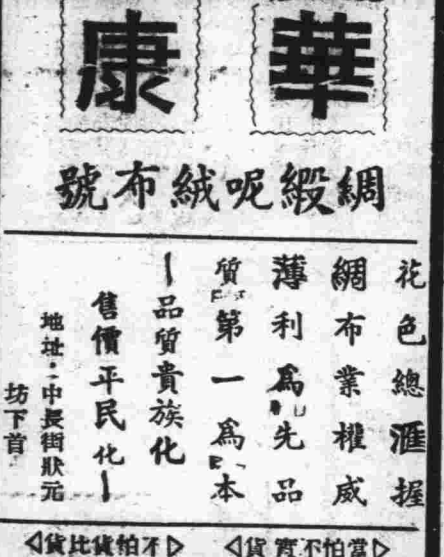 華康
綢緞呢絨布號
花色總滙握
綢布業權威
薄利爲先品
質第一爲本
—品質貴族化
售價平民化—
地址：中長街狀元
坊下首
▷當怕不實貨◁
▷不怕貨比貨◁